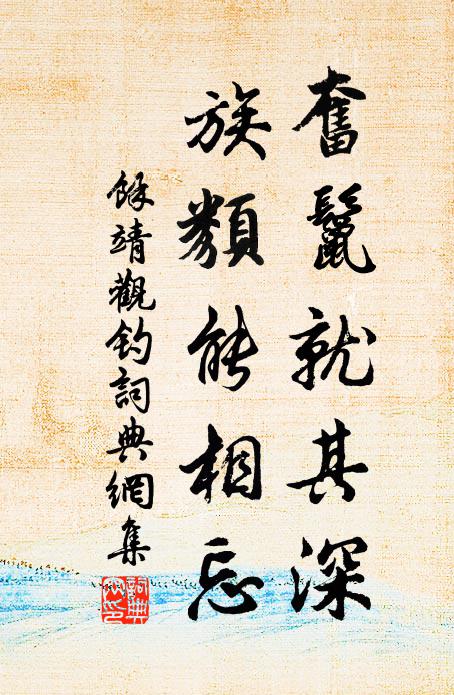 奮鬣就其深
族類能相忘
餘靖觀釣詞典網集